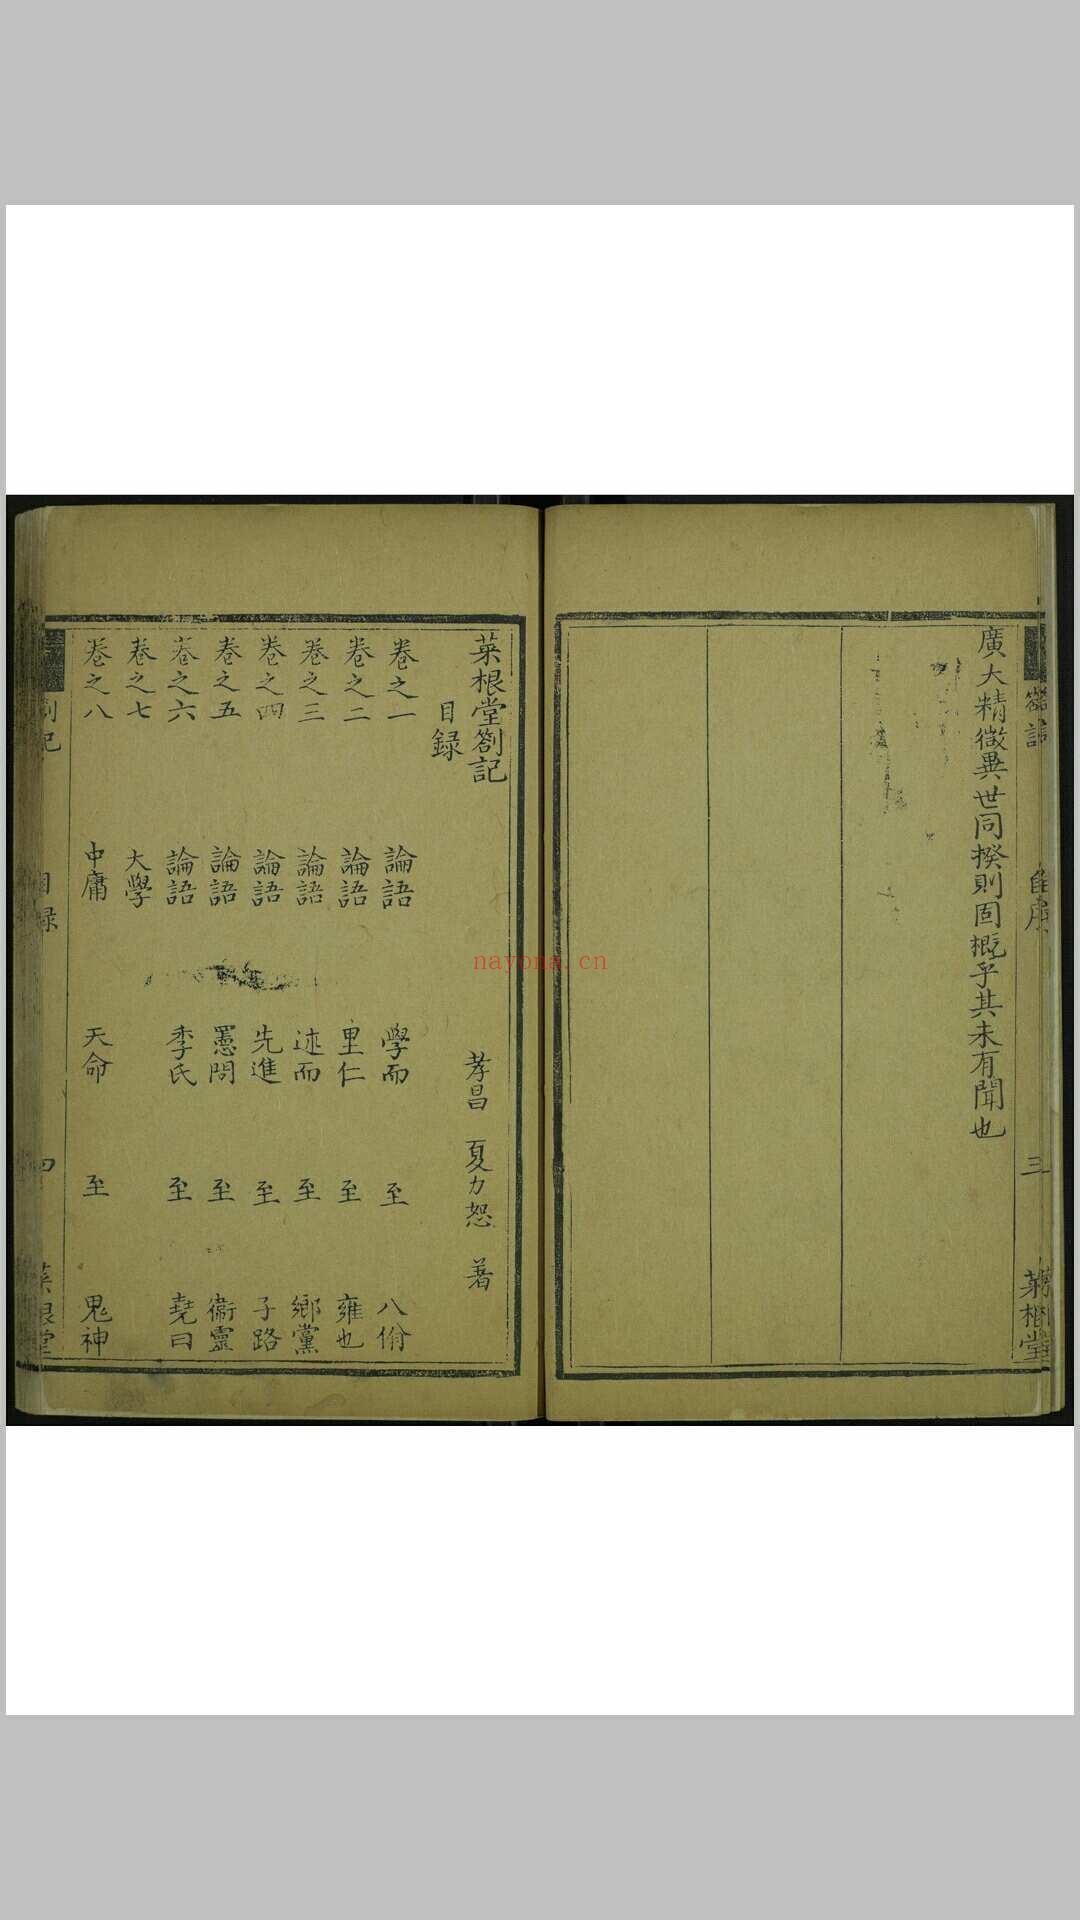 廣大精微異世同揆則固概乎其未有聞也
三
菜根堂
菜根堂劄記
孝昌 夏力恕 著
目録
卷之一 論語 學而 至 八佾
卷之二 論語 里仁 至 雍也
卷之三 論語 述而 至 鄉黨
卷之四 論語 先進 至 子路
卷之五 論語 憲問 至 衞靈
卷之六 論語 季氏 至 堯曰
卷之七 大學
卷之八 中庸 天命 至 鬼神
劄記
目録
四
菜根堂
nayona.cn